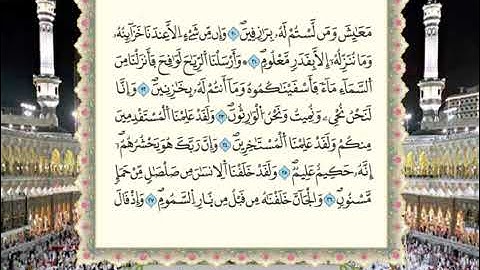 مَعَايِشَ وَمَن لَّسْتُمْ لَهُۥ بِرَازِقِينَ ۝٢٠ وَإِن مِّن شَيْءٍ إِلَّا عِندَنَا خَزَآئِنُهُۥ
وَمَا نُنَزِّلُهُۥٓ إِلَّا بِقَدَرٍ مَّعْلُومٍ ۝٢١ وَأَرْسَلْنَا ٱلرِّيَاحَ لَوَاقِحَ فَأَنزَلْنَا مِنَ
ٱلسَّمَآءِ مَآءً فَأَسْقَيْنَاكُمُوهُ وَمَآ أَنتُمْ لَهُۥ بِخَازِنِينَ ۝٢٢ وَإِنَّا
لَنَحْنُ نُحْيِۦ وَنُمِيتُ وَنَحْنُ ٱلْوَارِثُونَ ۝٢٣ وَلَقَدْ عَلِمْنَا ٱلْمُسْتَقْدِمِينَ
مِنكُمْ وَلَقَدْ عَلِمْنَا ٱلْمُسْتَاخِرِينَ ۝٢٤ وَإِنَّ رَبَّكَ هُوَ يَحْشُرُهُمْ
إِنَّهُۥ حَكِيمٌ عَلِيمٌ ۝٢٥ وَلَقَدْ خَلَقْنَا ٱلْإِنسَانَ مِن صَلْصَالٍ مِّنْ حَمَإٍ
مَّسْنُونٍ ۝٢٦ وَٱلْجَآنَّ خَلَقْنَاهُ مِن قَبْلُ مِن نَّارِ ٱلسَّمُومِ ۝٢٧ وَإِذْ قَالَ